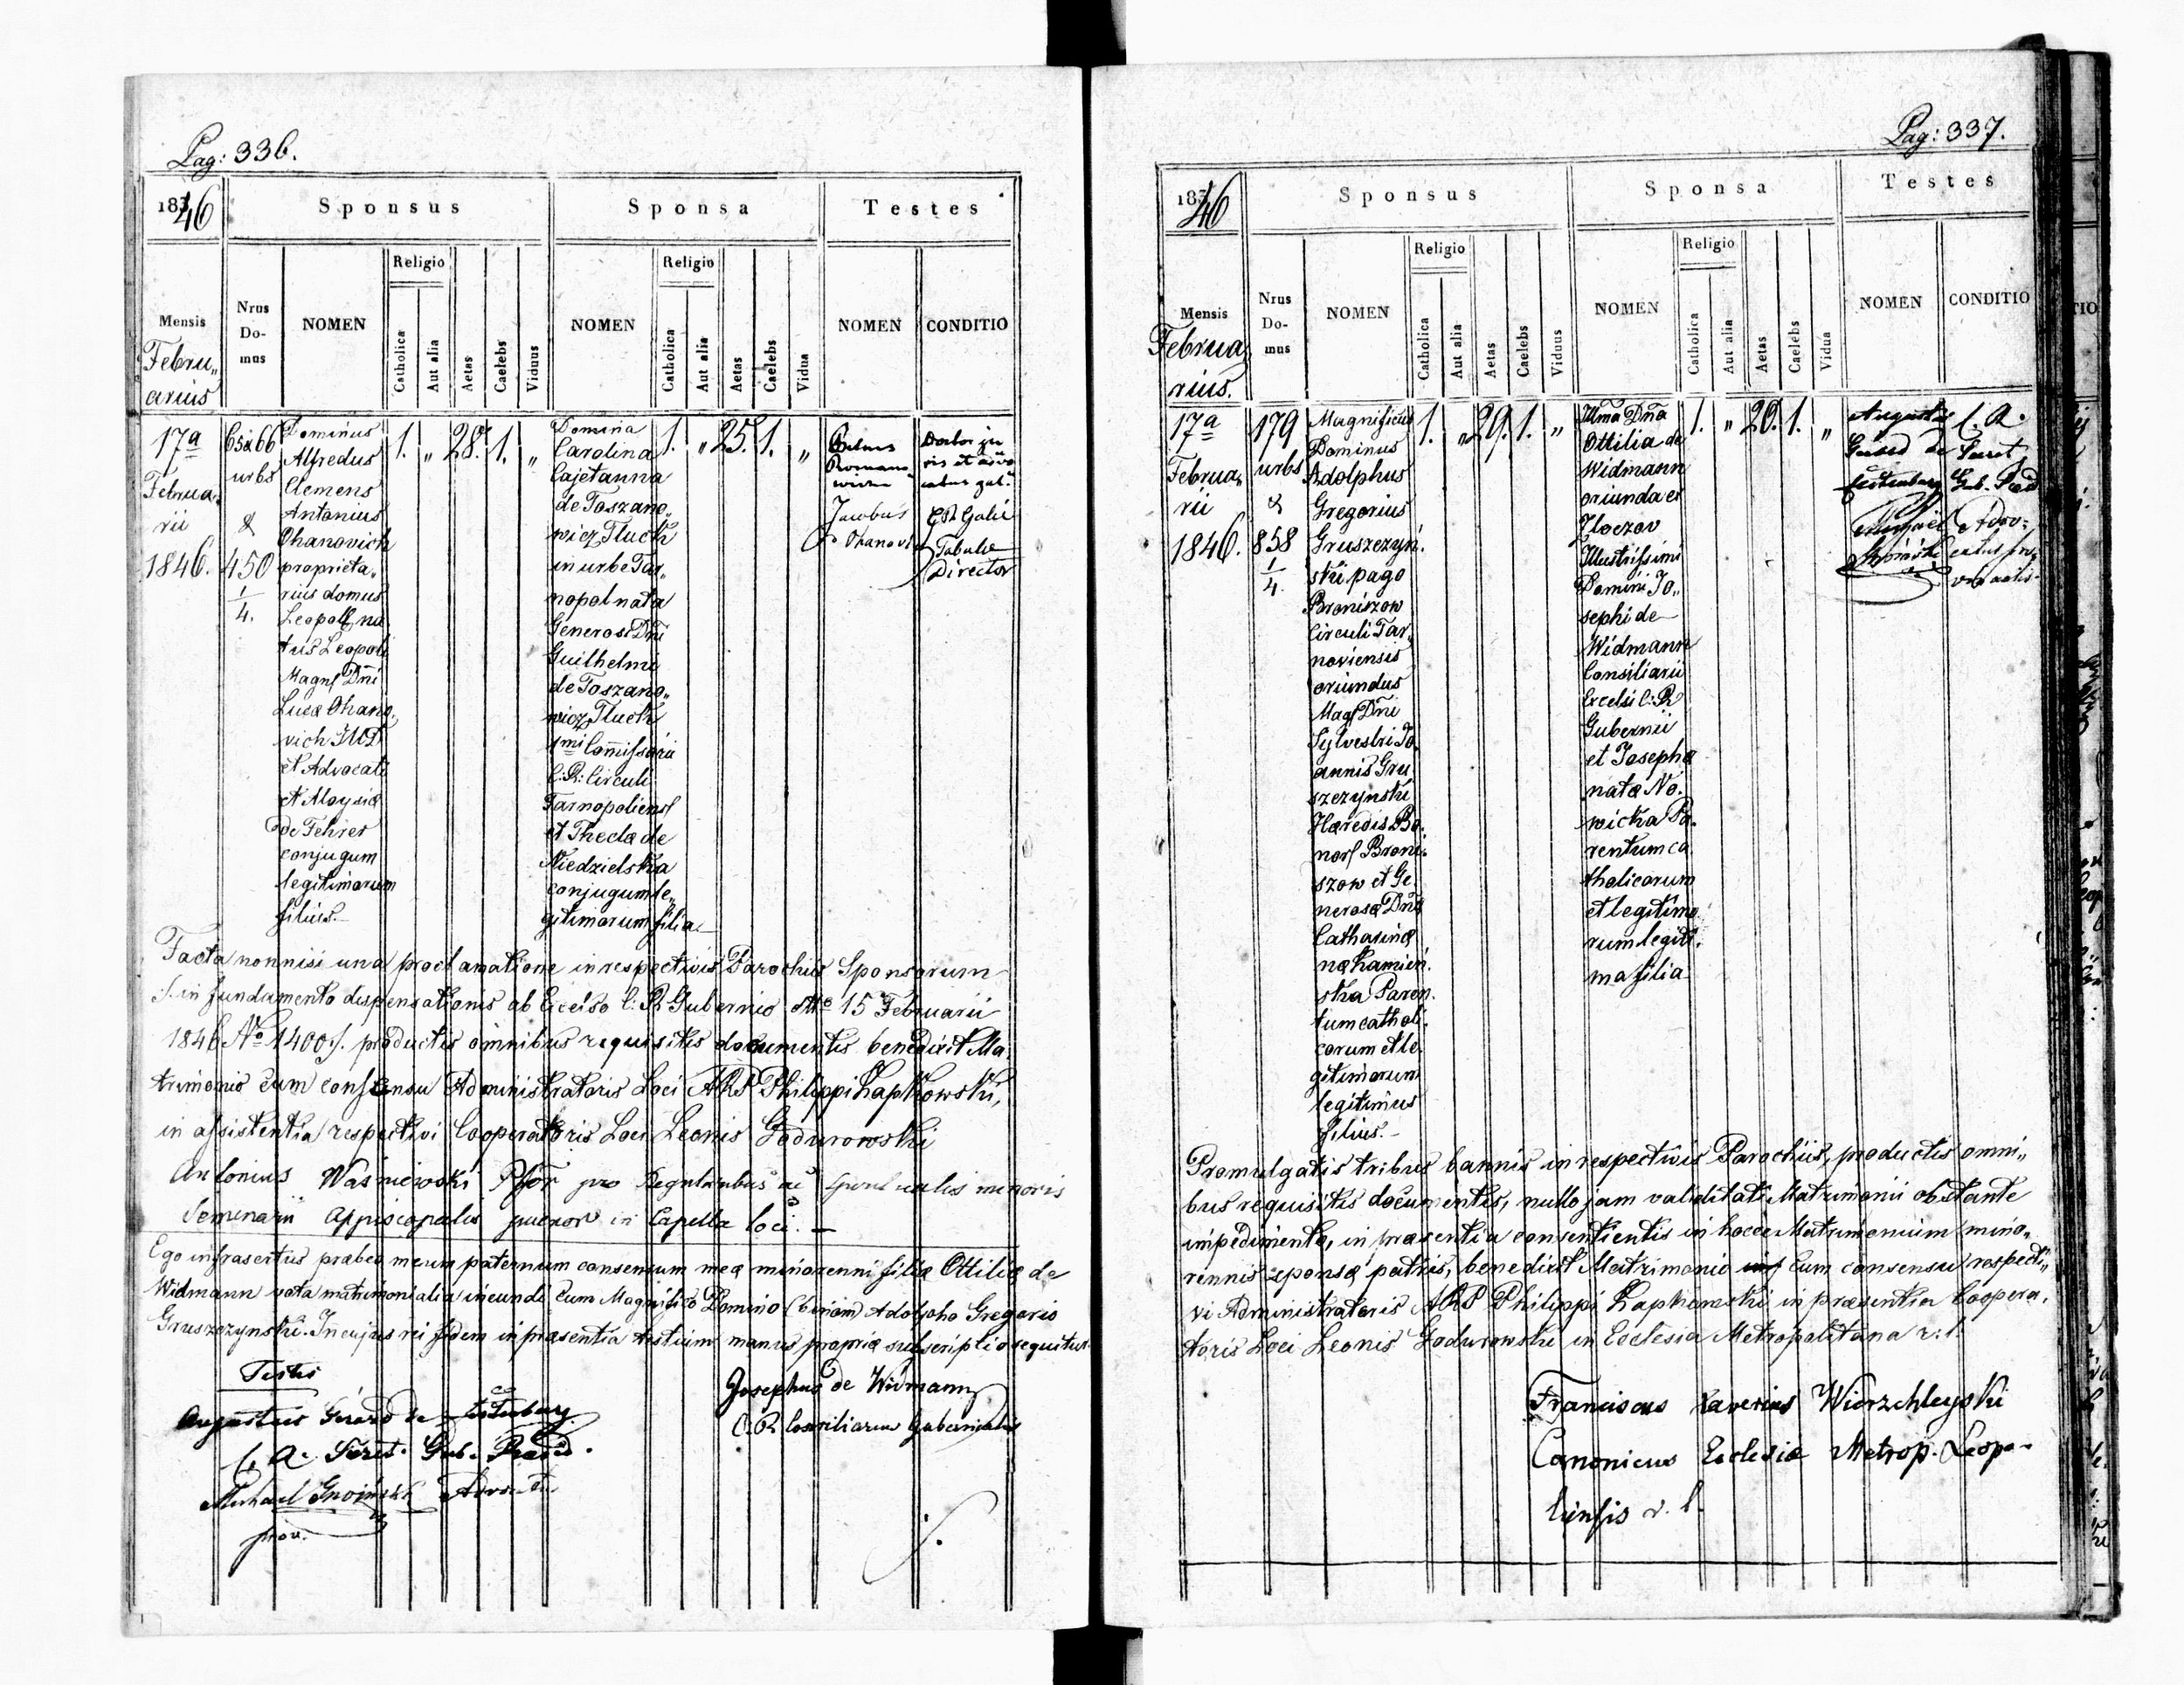 Pag: 336.
1846
Sponsus
Sponsa
Testes
Mensis
Febru„
arius
Nrus
Do-
mus
NOMEN
Religio
Catholica
Aut alia
Aetas
Caelebs
Viduus
NOMEN
Religio
Catholica
Aut alia
Aetas
Caelebs
Vidua
NOMEN
CONDITIO
17a
Februa„
rii
1846.
65a66
urbs
&
450
1
4.
Dominus
Alfredus
Clemens
Antonius
Ohanovich
proprieta„
rius domus
Leopoli na
tus Leopoli
Magnf Dni
Lucæ Ohano„
vich JUD
et Advocati
et Aloysiæ
de Fehrer
conjugum
legitimorum
filius.
1. „ 28. 1. „
Domina
Carolina
Cajetanna
de Toszano„
wicz Tluck
in urbe Tar„
nopol nata
Generosi Dni
Guilhelmi
de Toszano„
wicz Tluck
1mi Comissarii
C: R: Circuli
Tarnopoliensf
et Theclæ de
Niedzielska
conjugum le„
gitimorum filia.
1. „ 25. 1. „
Jacobus
Ohanovi
Doctor ju
ris et
CR Galic
Tabulæ
Director
Facta nonnisi una proclamatione in respectivis Parochiis Sponsorum
/: in fundamento dispensationis ab Excelso C: R Gubernio dtto 15 Februarii
1846 No 1400 :/. productis omnibus requisitis documentis benedixit Ma„
trimonio cum consensu Administratoris Loci ARP Philippi Łapkowski,
in assistentia respectivi Cooperatoris Loci Leonis Godurowski
Antonius Waśniewski Pfor pro Regularibus ac minoris
Seminarii in Capella loci. —
Ego infrascrtus præbeo meum paternum consensum meæ minorenni filiæ Ottiliæ de
Widmann vota matrimonialia ineundi cum Magnifico Domino (binom) Adolpho Gregorio
Gruszczynski. In cujus rei fidem in præsentia testium manus propriæ subscriptio sequitur
Testes
Augustus Gerard de Festenburg
C. A. Secret. Gub. Præsid.
Michael Gnoiński Advocatus
prov.
Josephus de Widmann
C. R Consiliarius Gubernialis
Pag: 337.
1846
Sponsus
Sponsa
Testes
Mensis
Februa
rius.
Nrus
Do-
mus
NOMEN
Religio
Catholica
Aut alia
Aetas
Caelebs
Viduus
NOMEN
Religio
Catholica
Aut alia
Aetas
Caelebs
Vidua
NOMEN
CONDITIO
17a
Februa„
rii
1846.
179
urbs
&
858
1
4.
Magnificus
Dominus
Adolphus
Gregorius
Gruszczyń.
ski pago
Broniszow
Circuli Tar„
noviensis
oriundus
Magf Dni
Sylvestri Jo„
annis Gru
szczynski
Hæredis Bo„
norf Broni„
szow et Ge
nerosæ Dnæ
Catharinæ
næ Kamień„
ska Paren„
tum catholi„
corum et le„
gitimorum
legitimus
filius.
1. „ 29. 1. „
Illma Dna
Ottilia de
Widmann
oriunda ex
Zloczov
Illustrissimi
Domini Jo„
sephi de
Widmann
Consiliarii
Excelsi C: R
Gubernii
et Josephæ
natæ No„
wicka Pa„
rentum ca„
tholicorum
et legitimo„
rum legiti„
ma filia
1. „ 20. 1. „
Augustus
Gerard de
Festenburg
Michael
Gnoiński
C. A.
Secret
Gub. Præs
Advo„
catus pro„
vincialis
Promulgatis tribus bannis in respectivis Parochiis, productis omni„
bus requisitis documentis, nullo jam validitati Matrimonii obstante
impedimento, in præsentia consentientis in hocce Matrimonium mino„
rennis sponsæ patris, benedixit Matrimonio cum consensu respecti„
vi Administratoris ARP Philippi Łapkowski in præsentia Coopera„
toris Loci Leonis Godurowski in Ecclesia Metropolitana r: l:
Franciscus Xaverius Wierzchleyski
Canonicus Ecclesiæ Metrop. Leopo-
liensis r. l.